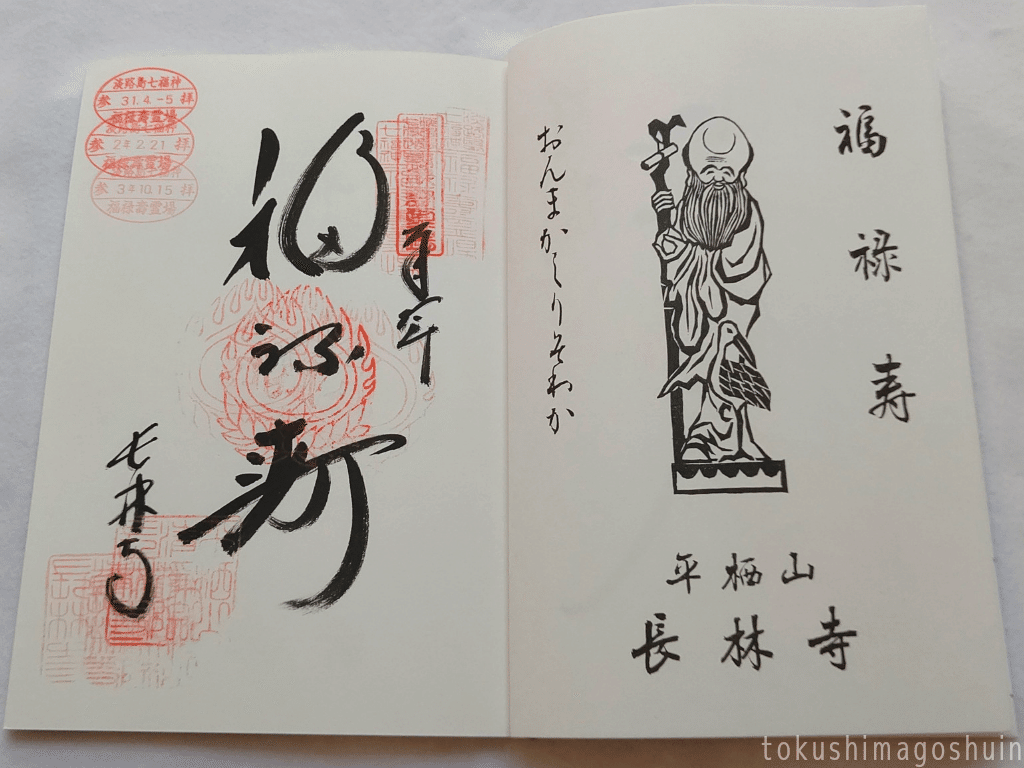 福禄寿
おんまかしりそわか
平栖山
長林寺
奉拝
福禄寿
長林寺
淡路島七福神
参 31.4.-5 拝
福禄壽霊場
参 2年2.21 拝
参 3年10.15 拝
福禄壽霊場
tokushimagoshuin